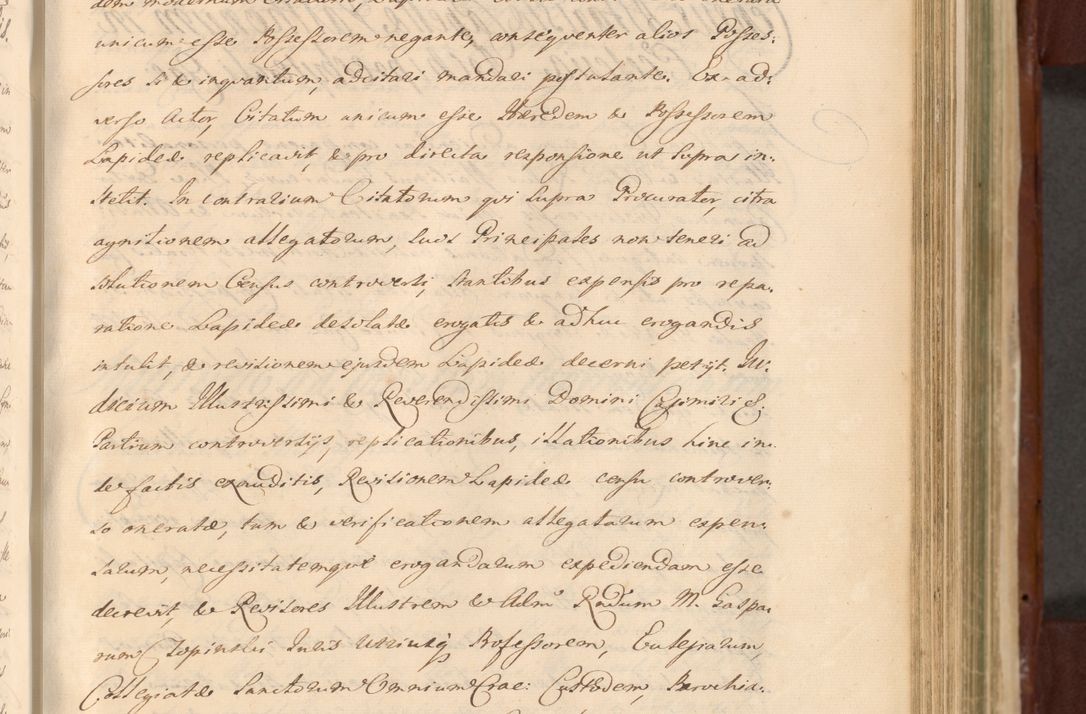 unicum esse Possessorem negante, conseqventer alios Posses:
sores si & inqvantum, adcitari mandari postulante. Ex ad:
verso Actor, Citatum unicum esse Hæredem & Possessorem
Lapideæ replicavit, & pro directa responsione ut supra in:
stetit. In contrarium Citatorum qvi supra Procurator, citra
agnitionem allegatorum, suos Principales non teneri ad
solutionem Census controversi, stantibus expensis pro repa:
ratione Lapideæ desolatæ erogatis & adhuc erogandis
intulit, & revisionem ejusdem Lapideæ decerni petijt. Iu:
dicium Illustrissimi & Reverendissimi Domini Casimiri &.
Partium controversijs, replicationibus, illationibus hinc in:
de factis exauditis, Revisionem Lapideæ censu controver:
so oneratæ, tum & verificationem allegatarum expen:
sarum, necessitatemqve erogandarum expediendam esse
decrevit, & Revisores Illustrem & Adm. Rndum M. Gaspa:
rum Topinski Iuris Utriusq Professorem, Ecclesiarum,
Collegiatæ Sanctorum Omnium Crac: Custodem, Parochia: